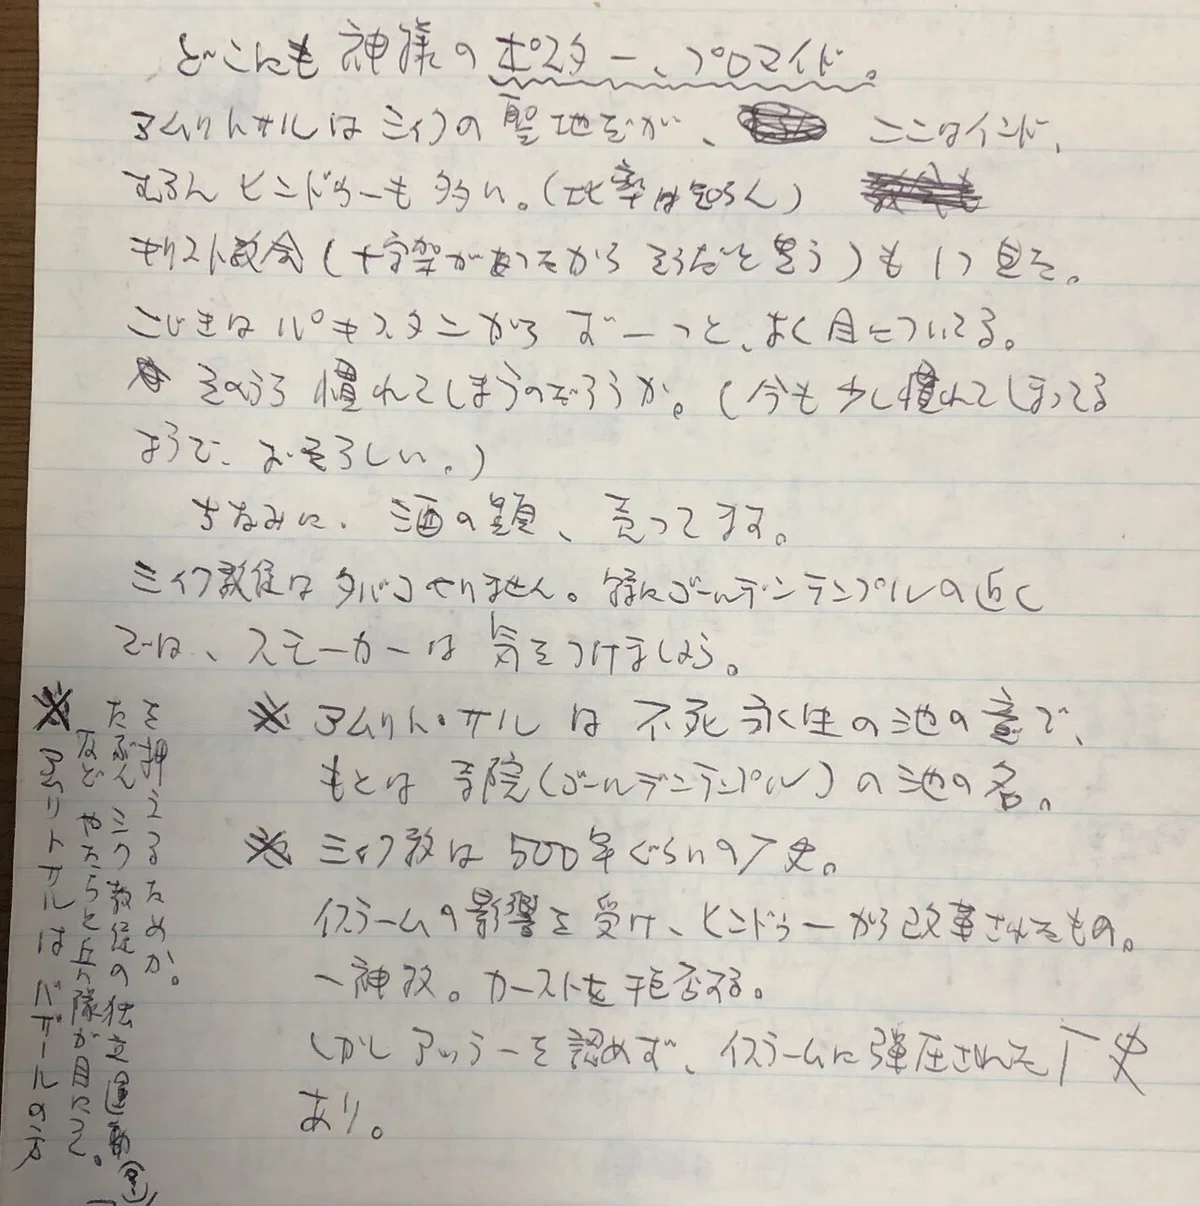 どこにも神様のポスター、プロマイド。
アムリトサルはシィクの聖地だが、ここはインド、
むろんヒンドゥーも多い。(比率は知らん)
キリスト教会(十字架があったからそうだと思う)も1つ見た。
こじきはパキスタンからずーっと、よく目についてる。
そのうち慣れてしまうのだろうか。(今も少し慣れてしまってる
ようで、おそろしい。)
ちなみに、酒の類、売ってます。
シィク教徒はタバコやりません。特にゴールデンテンプルの近く
では、スモーカーは気をつけましょう。
※ アムリト・サルは不死永生の池の意で、
もとは寺院(ゴールデンテンプル)の池の名。
※ シィク教は500年ぐらいの厂史。
イスラームの影響を受け、ヒンドゥーから改革されたもの。
一神教。カーストを拒否する。
しかしアッラーを認めず、イスラームに弾圧された厂史
あり。
を押えるためか。
たぶんシク教徒の独立運動
などやたらと兵隊が目につく。
※ アムリトサルはバザールの方